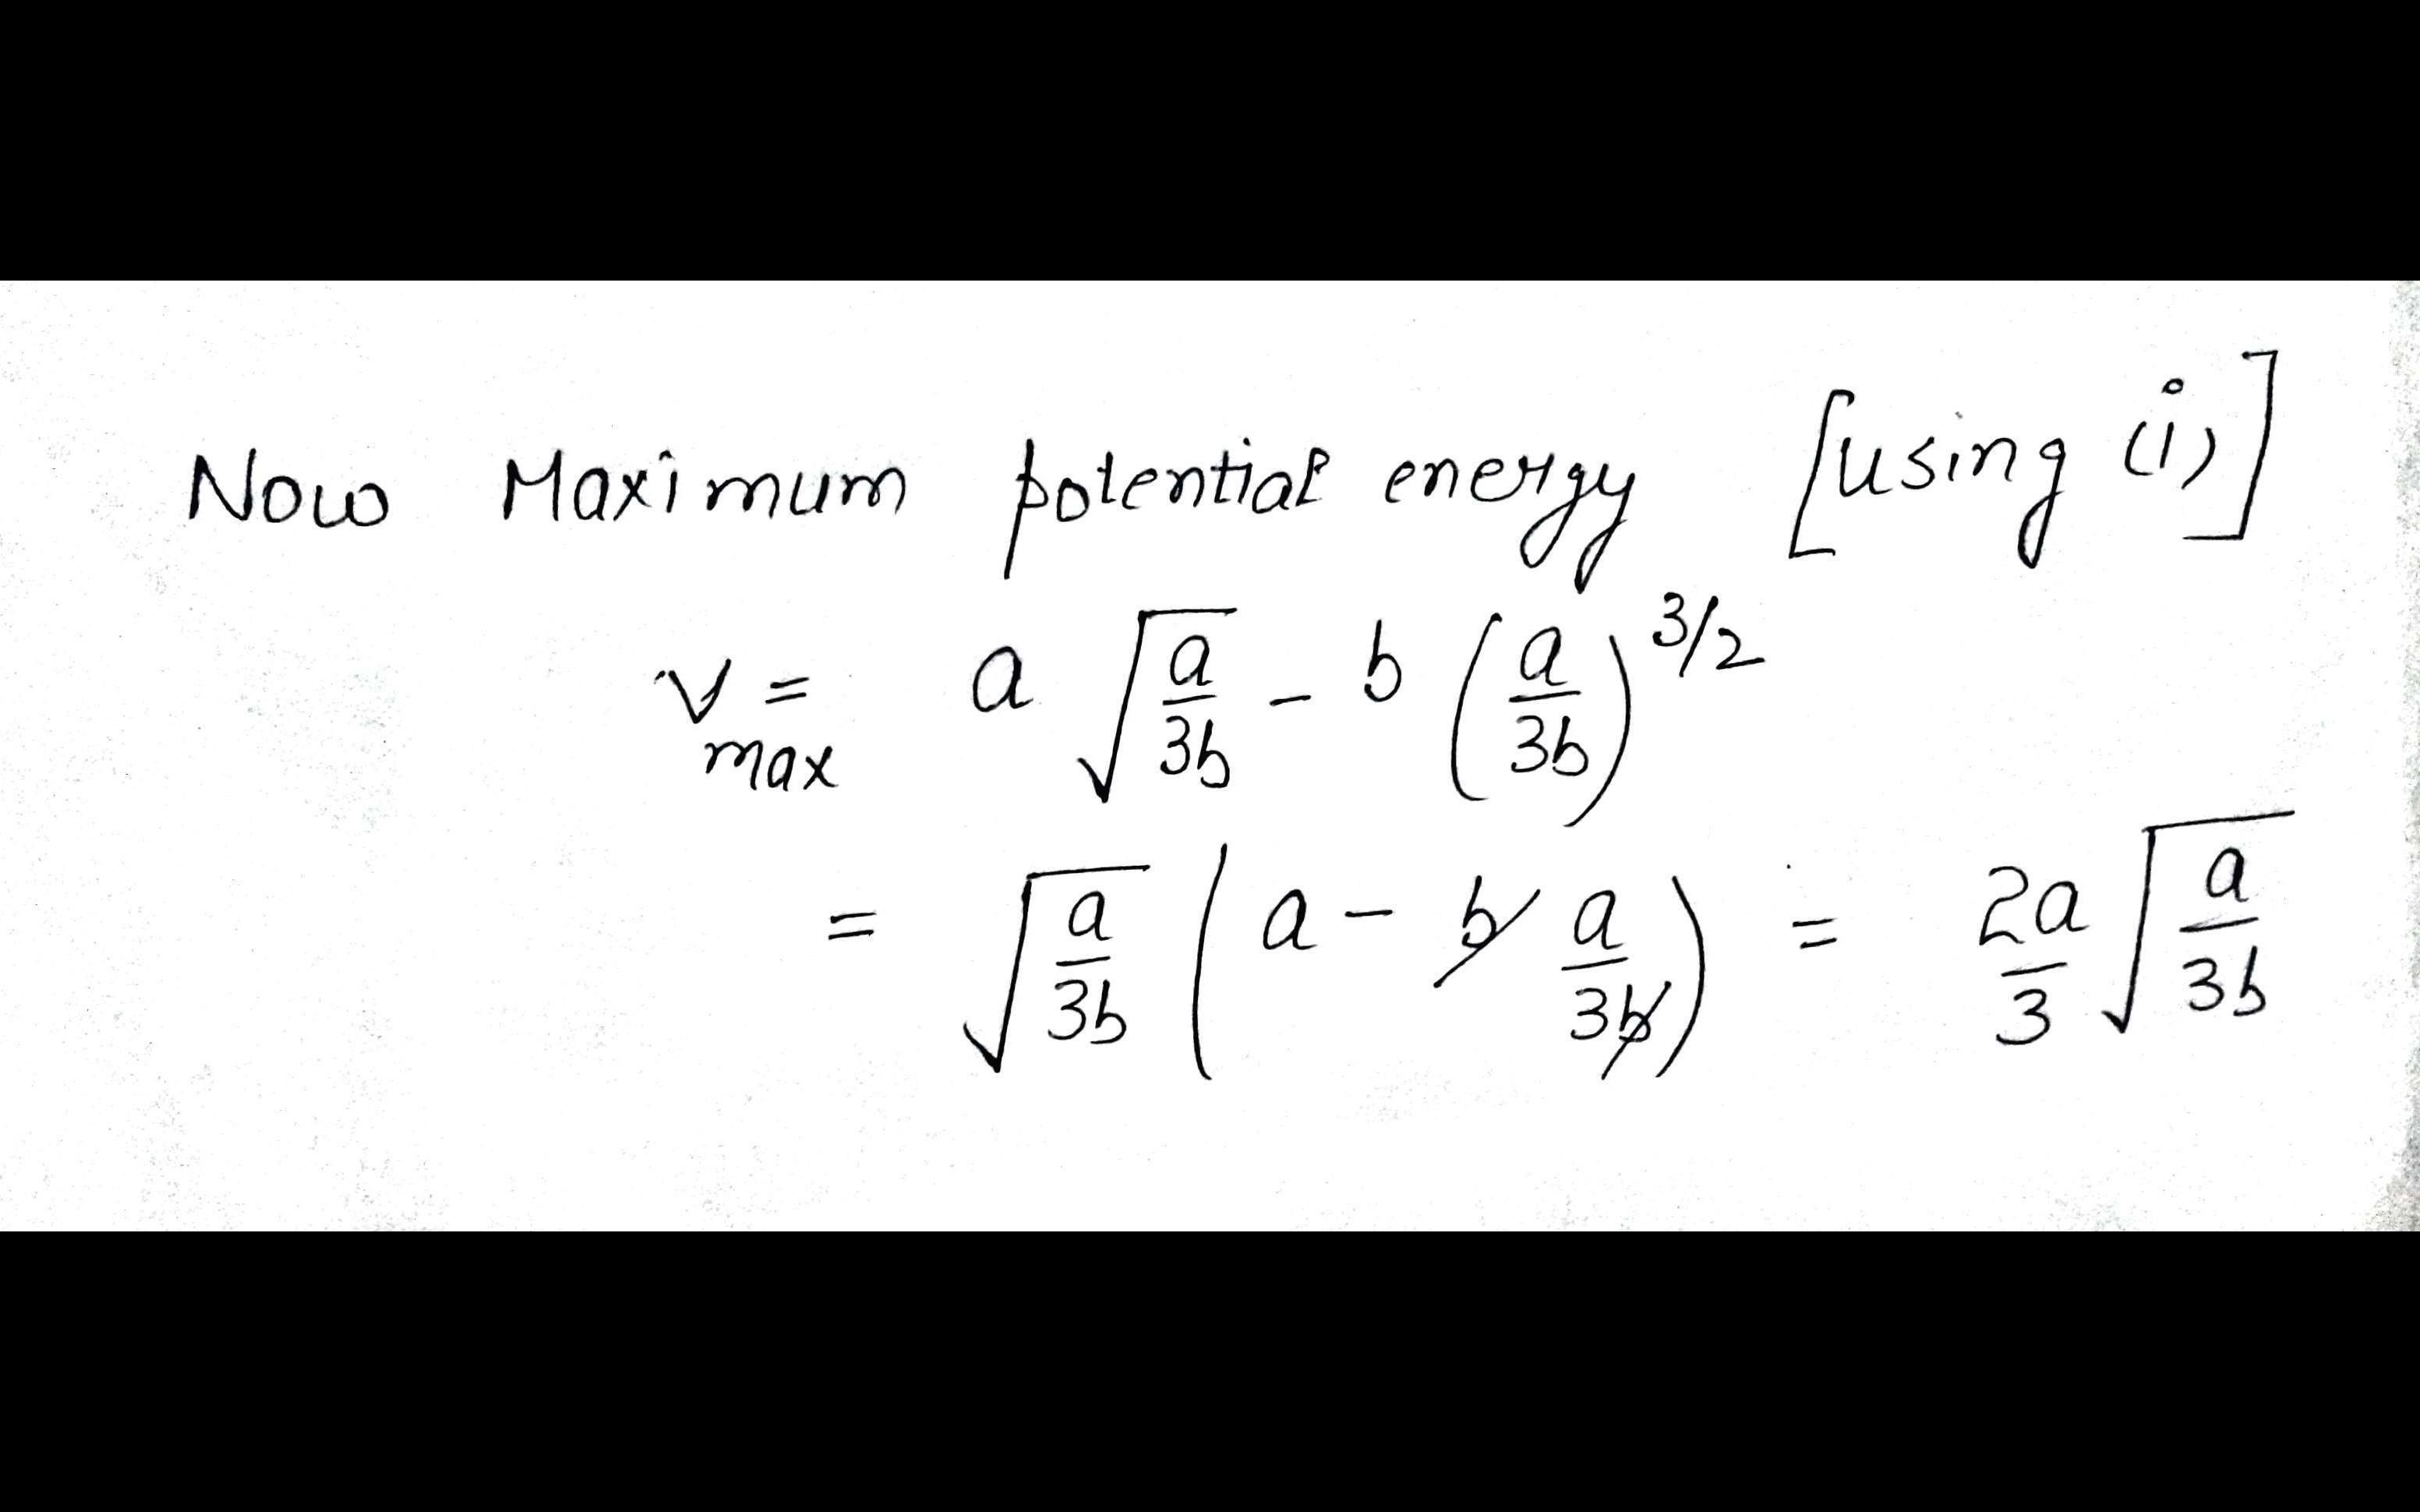 Now Maximum potential energy [using (i)]
V_max = a √(a/3b) - b (a/3b)^3/2
= √(a/3b) (a - b a/3b) = 2a/3 √(a/3b)